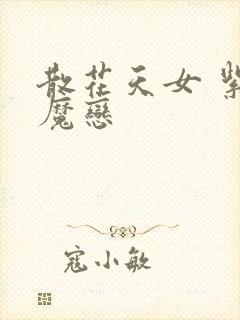 散花天女 紫
魔戀
寇小敏